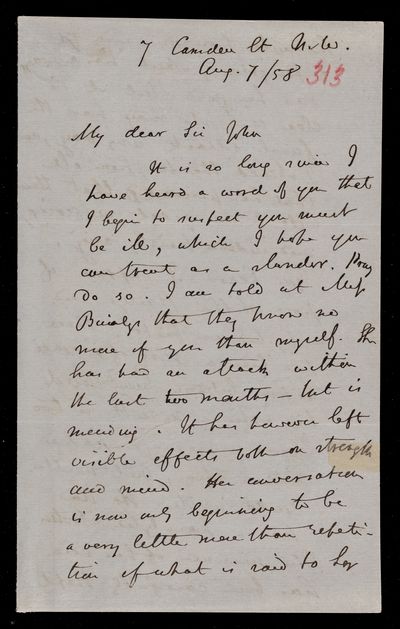 7 Camden St N.W.
Aug. 7/58 313
My dear Sir John
It is so long since I
have heard a word of you that
I begin to suspect you must
be ill, which I hope you
can treat as a slander. Pray
do so. I am told at Miss
that they know no
more of you than myself. She
has had an attack within
the last two months – but is
mending. It has however left
visible effects both on strength
and mind. Her conversation
is now only beginning to be
a very little more than repeti-
tion of what is said to her